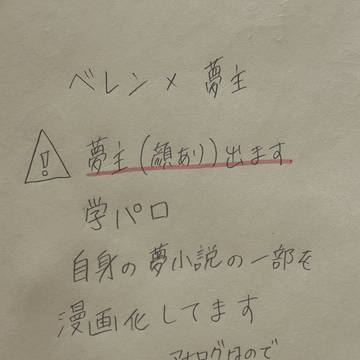 ベレン×夢主
夢主(顔あり)出ます
学パロ
自身の夢小説の一部を
漫画化してます
アナログなので